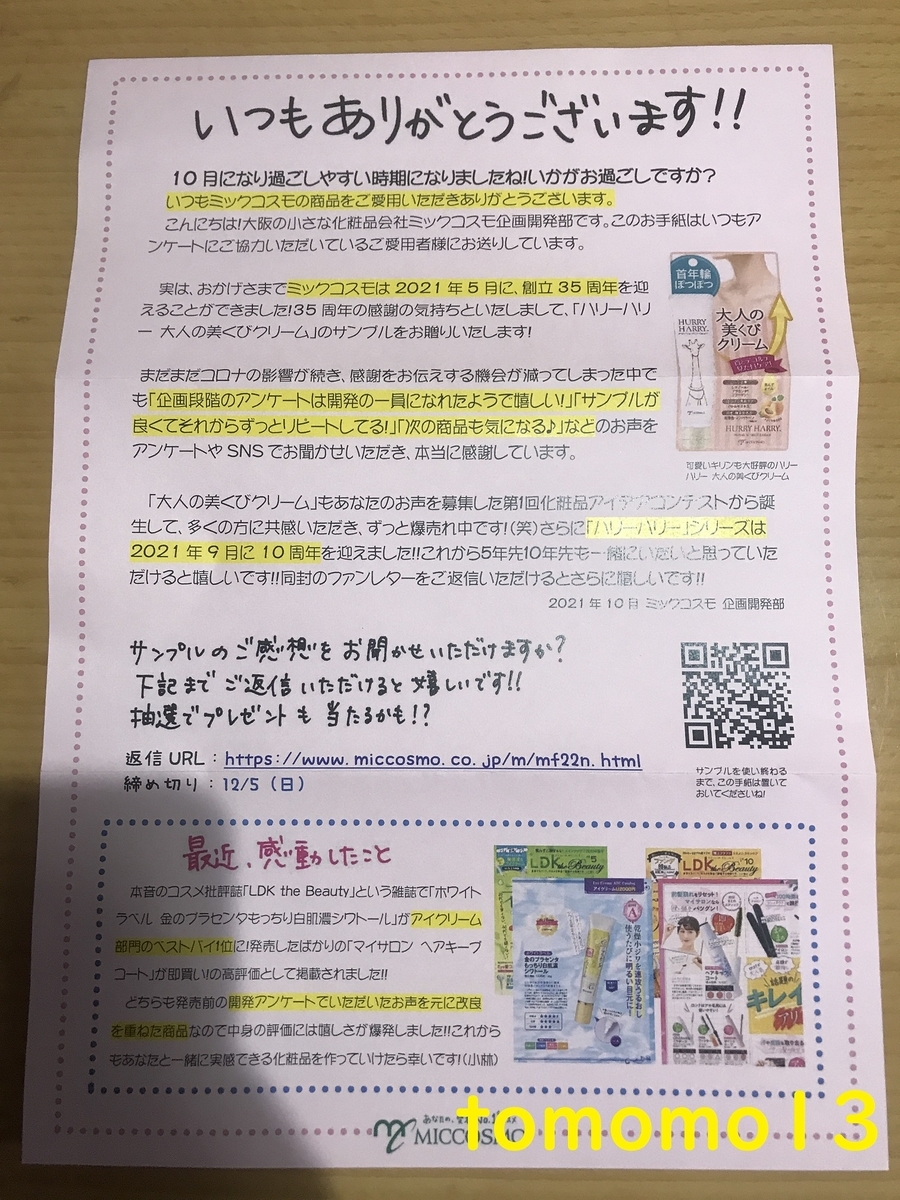 いつもありがとうございます!!
10月になり過ごしやすい時期になりましたね!いかがお過ごしですか?
いつもミックコスモの商品をご愛用いただきありがとうございます。
こんにちは!大阪の小さな化粧品会社ミックコスモ企画開発部です。このお手紙はいつもア
ンケートにご協力いただいているご愛用者様にお送りしています。
実は、おかげさまでミックコスモは2021年5月に、創立35周年を迎
えることができました!35周年の感謝の気持ちといたしまして、「ハリーハリ
ー 大人の美くびクリーム」のサンプルをお贈りいたします!
まだまだコロナの影響が続き、感謝をお伝えする機会が減ってしまった中で
も「企画段階のアンケートは開発の一員になれたようで嬉しい!」「サンプルが
良くてそれからずっとリピートしてる!」「次の商品も気になる♪」などのお声を
アンケートやSNSでお聞かせいただき、本当に感謝しています。
首年輪
ぽつぽつ
HURRY
HARRY.
大人の
美くび
クリーム
HURRY HARRY.
可愛いキリンも大好評のハリー
ハリー 大人の美くびクリーム
「大人の美くびクリーム」もあなたのお声を募集した第1回化粧品アイデアコンテストから誕
生して、多くの方に共感いただき、ずっと爆売れ中です!(笑)さらに「ハリーハリー」シリーズは
2021年9月に10周年を迎えました!!これから5年先10年先も一緒にいたいと思っていた
だけると嬉しいです!!同封のファンレターをご返信いただけるとさらに嬉しいです!!
2021年10月 ミックコスモ 企画開発部
サンプルのご感想をお聞かせいただけますか?
下記までご返信いただけると嬉しいです!!
抽選でプレゼントも当たるかも!?
返信URL:https://www.miccosmo.co.jp/m/mf22n.html
締め切り:12/5(日)
サンプルを使い終わる
まで、この手紙は置いて
おいてくださいね!
最近、感動したこと
本音のコスメ批評誌「LDK the Beauty」という雑誌で「ホワイト
ラベル 金のプラセンタもっちり白肌濃シワトール」がアイクリーム
部門のベストバイ1位に!発売したばかりの「マイサロン ヘアキープ
コート」が即買い!の高評価として掲載されました!!
どちらも発売前の開発アンケートでいただいたお声を元に改良
を重ねた商品なので中身の評価には嬉しさが爆発しました!!これから
もあなたと一緒に実感できる化粧品を作っていけたら幸いです!(小林)
LDK the Beauty
LDK the Beauty
乾燥小ジワを速攻うるおし
使うたびに明るい目元に!
金のプラセンタ
もっちり白肌濃
シワトール
キレイ
MICCOSMO
tomomo13